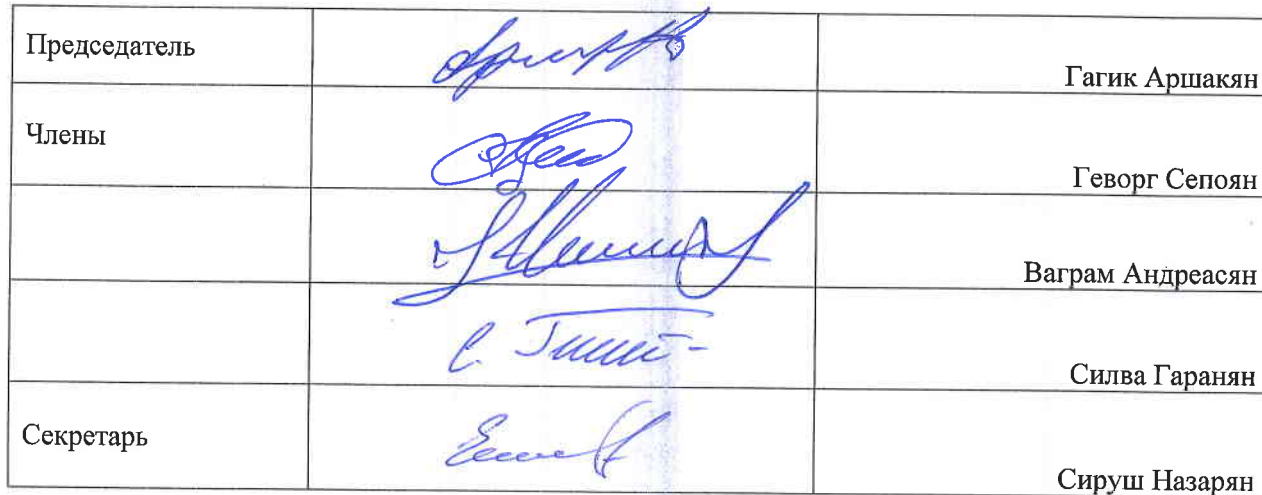 Председатель
Гагик Аршакян
Члены
Геворг Сепоян
Ваграм Андреасян
Силва Гаранян
Секретарь
Сируш Назарян